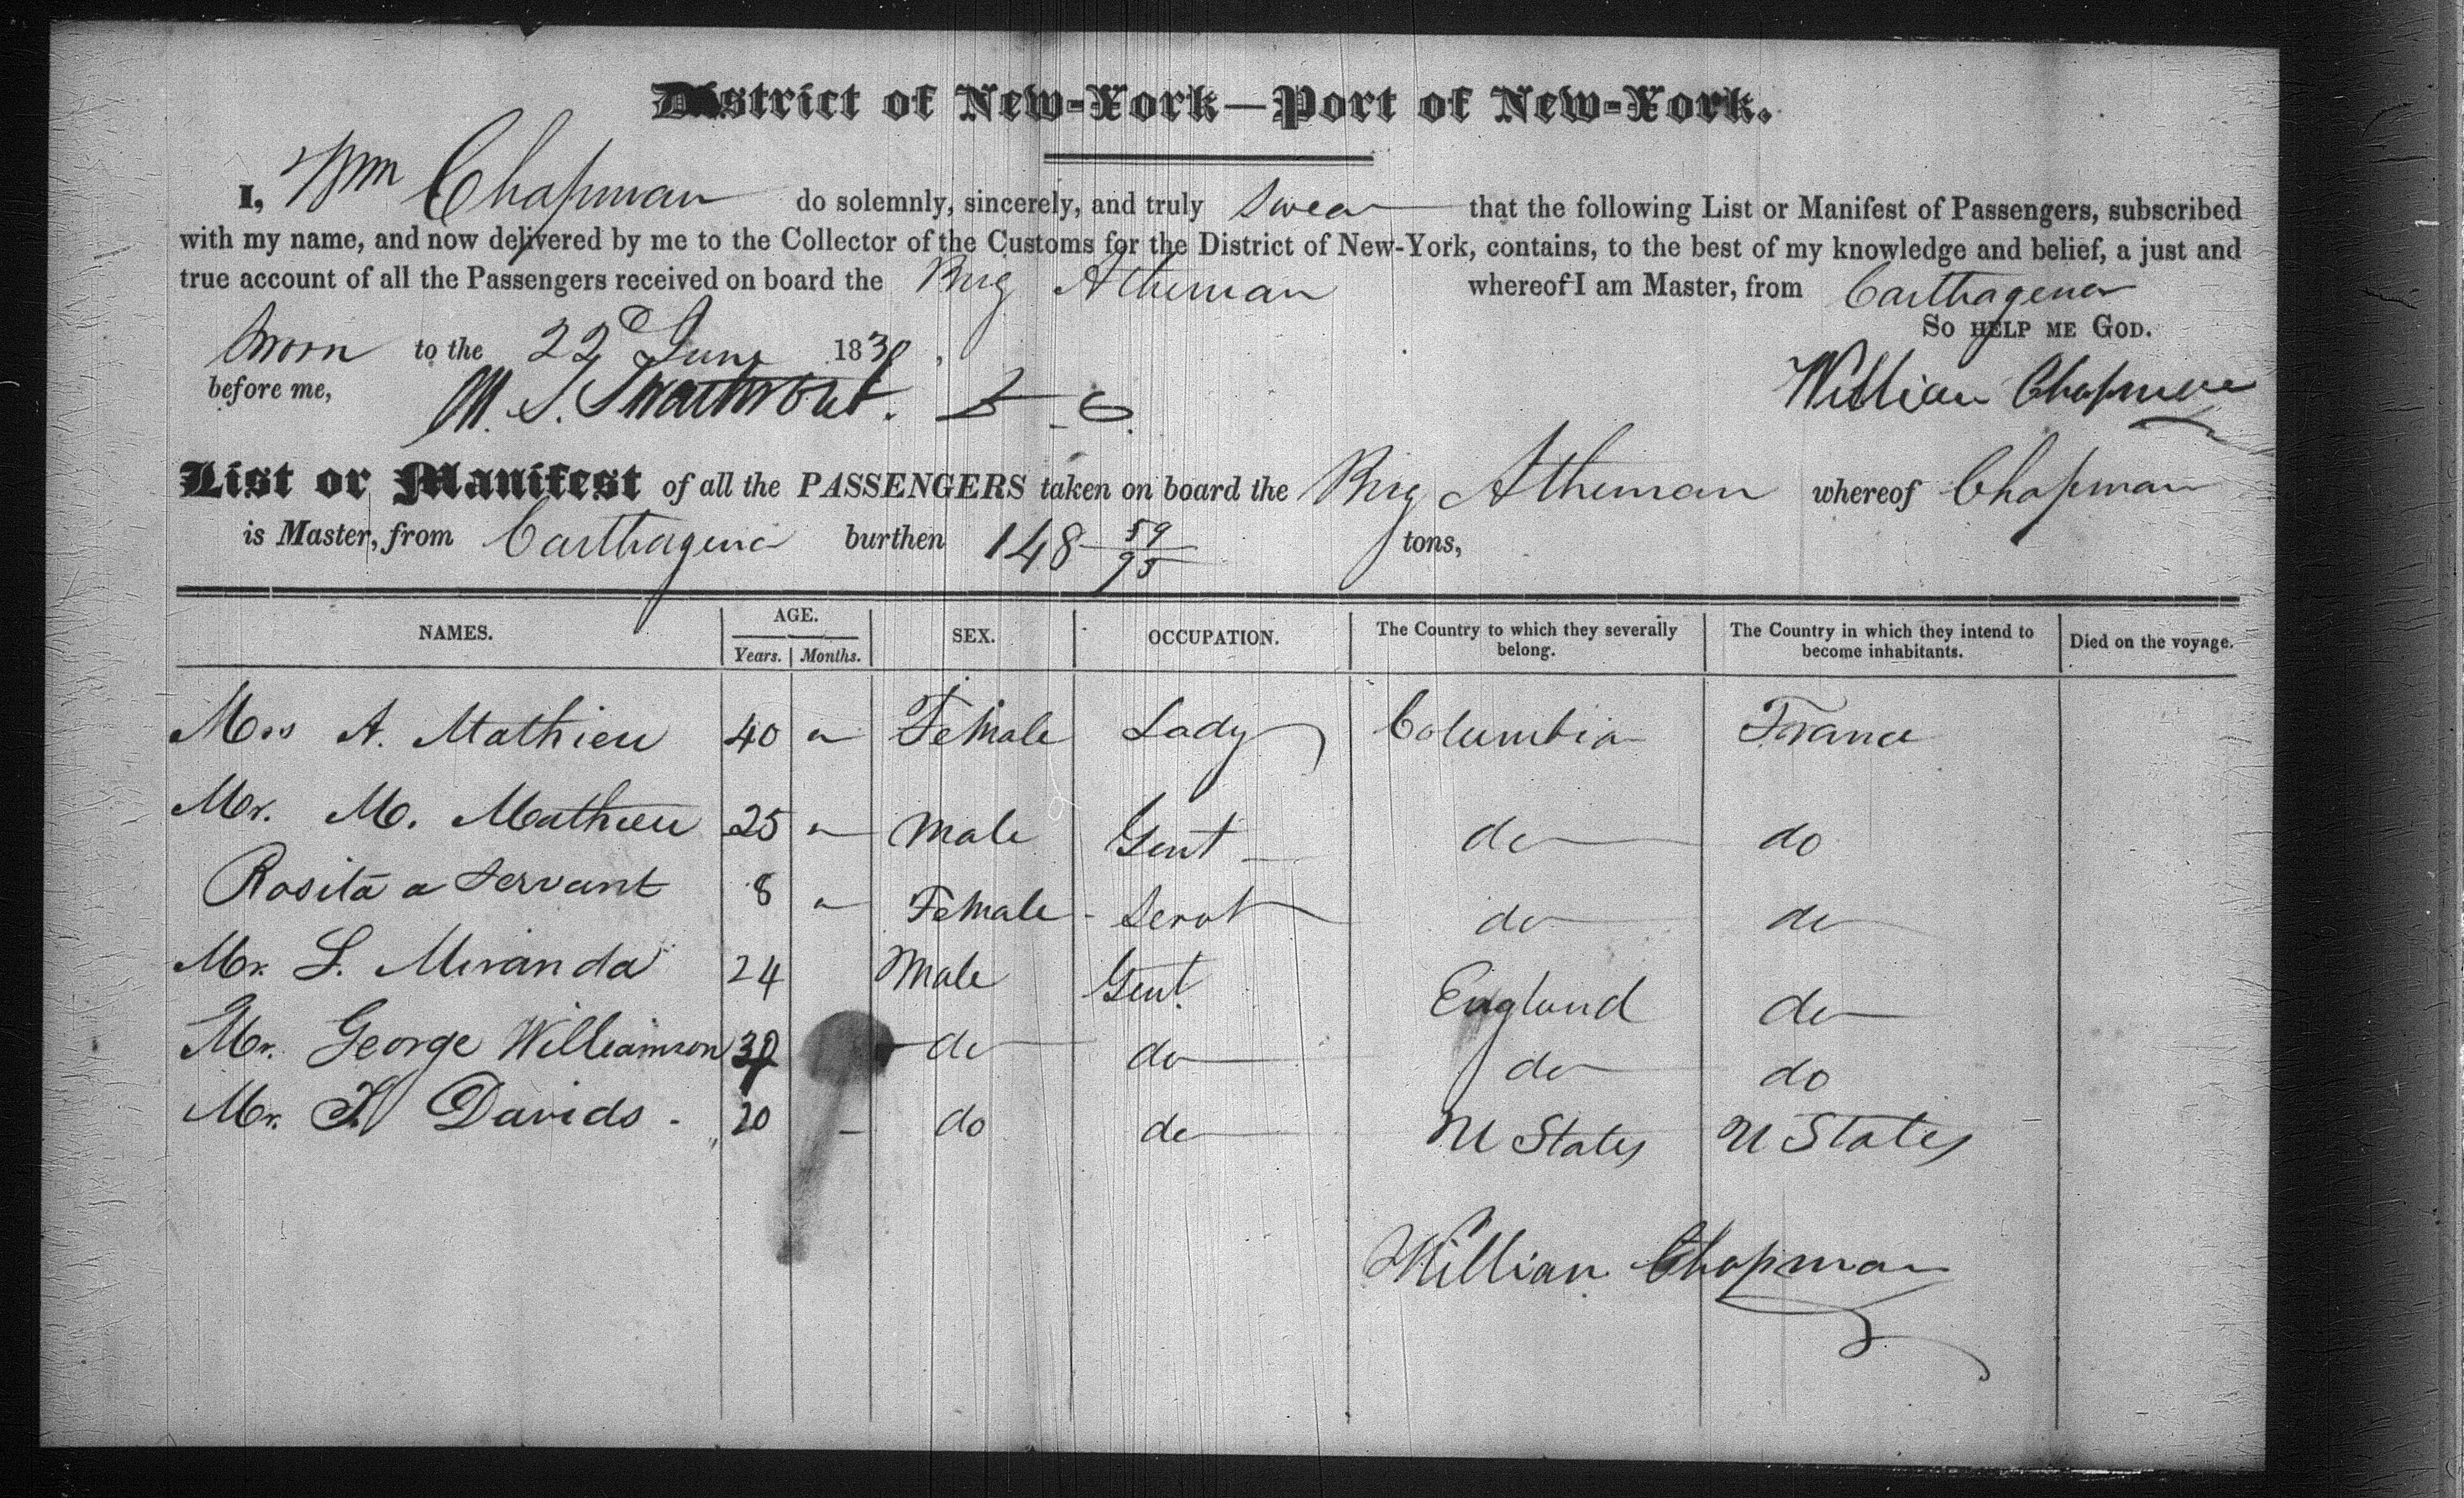 District of New-York—Port of New-York.
I, Wm Chapman do solemnly, sincerely, and truly Swear that the following List or Manifest of Passengers, subscribed
with my name, and now delivered by me to the Collector of the Customs for the District of New-York, contains, to the best of my knowledge and belief, a just and
true account of all the Passengers received on board the Brig Athenian whereof I am Master, from Carthagena
So HELP ME GOD.
Sworn to the 22d June 1830,
before me, M. S. Swartwout. William Chapman
List or Manifest of all the PASSENGERS taken on board the Brig Athenian whereof Chapman
is Master, from Carthagena burthen 148 59/95 tons,
NAMES. AGE. Years. Months. SEX. OCCUPATION. The Country to which they severally belong. The Country in which they intend to become inhabitants. Died on the voyage.
Mrs A. Mathieu 40 Female Lady Columbia France
Mr. M. Mathieu 25 Male Gent do do
Rosita a Servant 8 Female Servt do do
Mr. L. Miranda 24 Male Gent. England do
Mr. George Williamson do do do do
Mr. Davids 20 do do U States U States
William Chapman